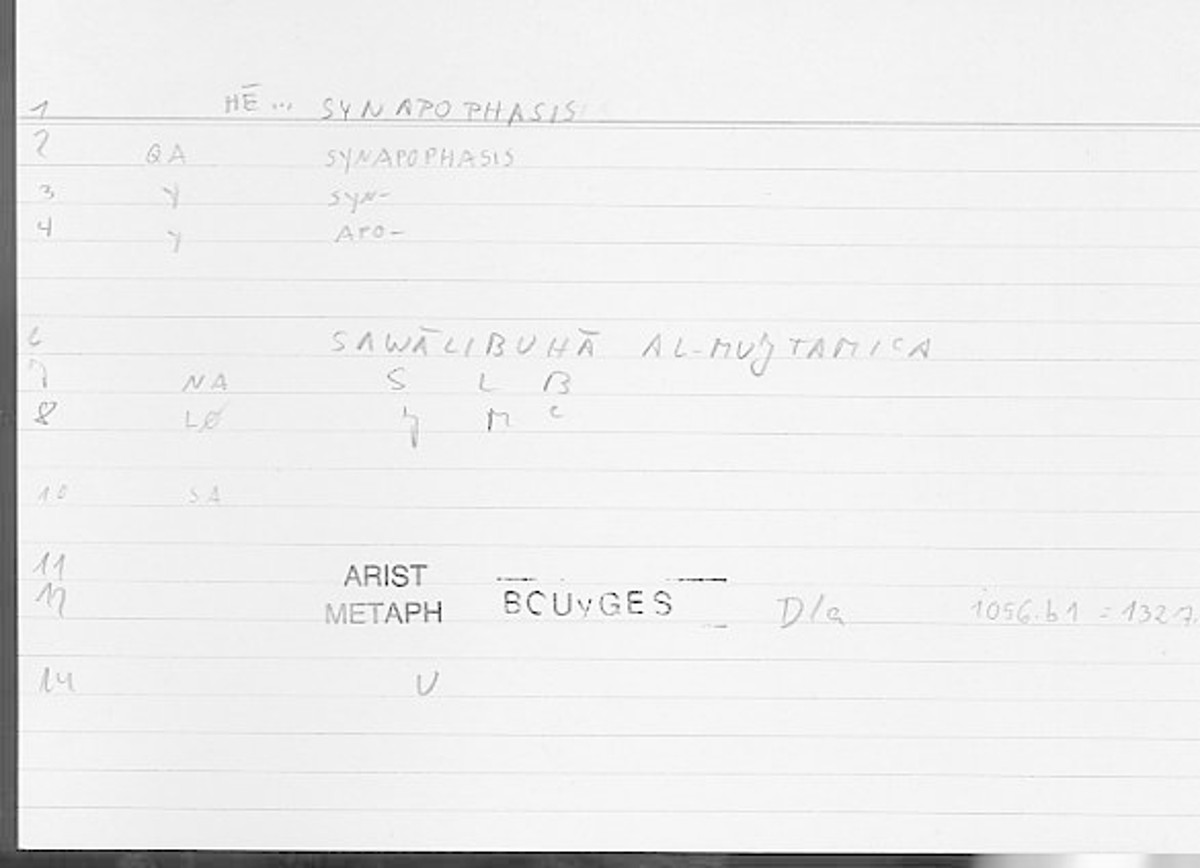 1 HĒ... SYNAPOPHASIS
2 QA SYNAPOPHASIS
3 Y SYN-
4 Y APO-
6 SAWĀLIBUHĀ AL-MUǧTAMIʿA
7 NA S L B
8 LØ ǧ M ʿ
10 SA
11 ARIST
12 METAPH BOUyGES D/a 1056.b1 = 1327.
14 U